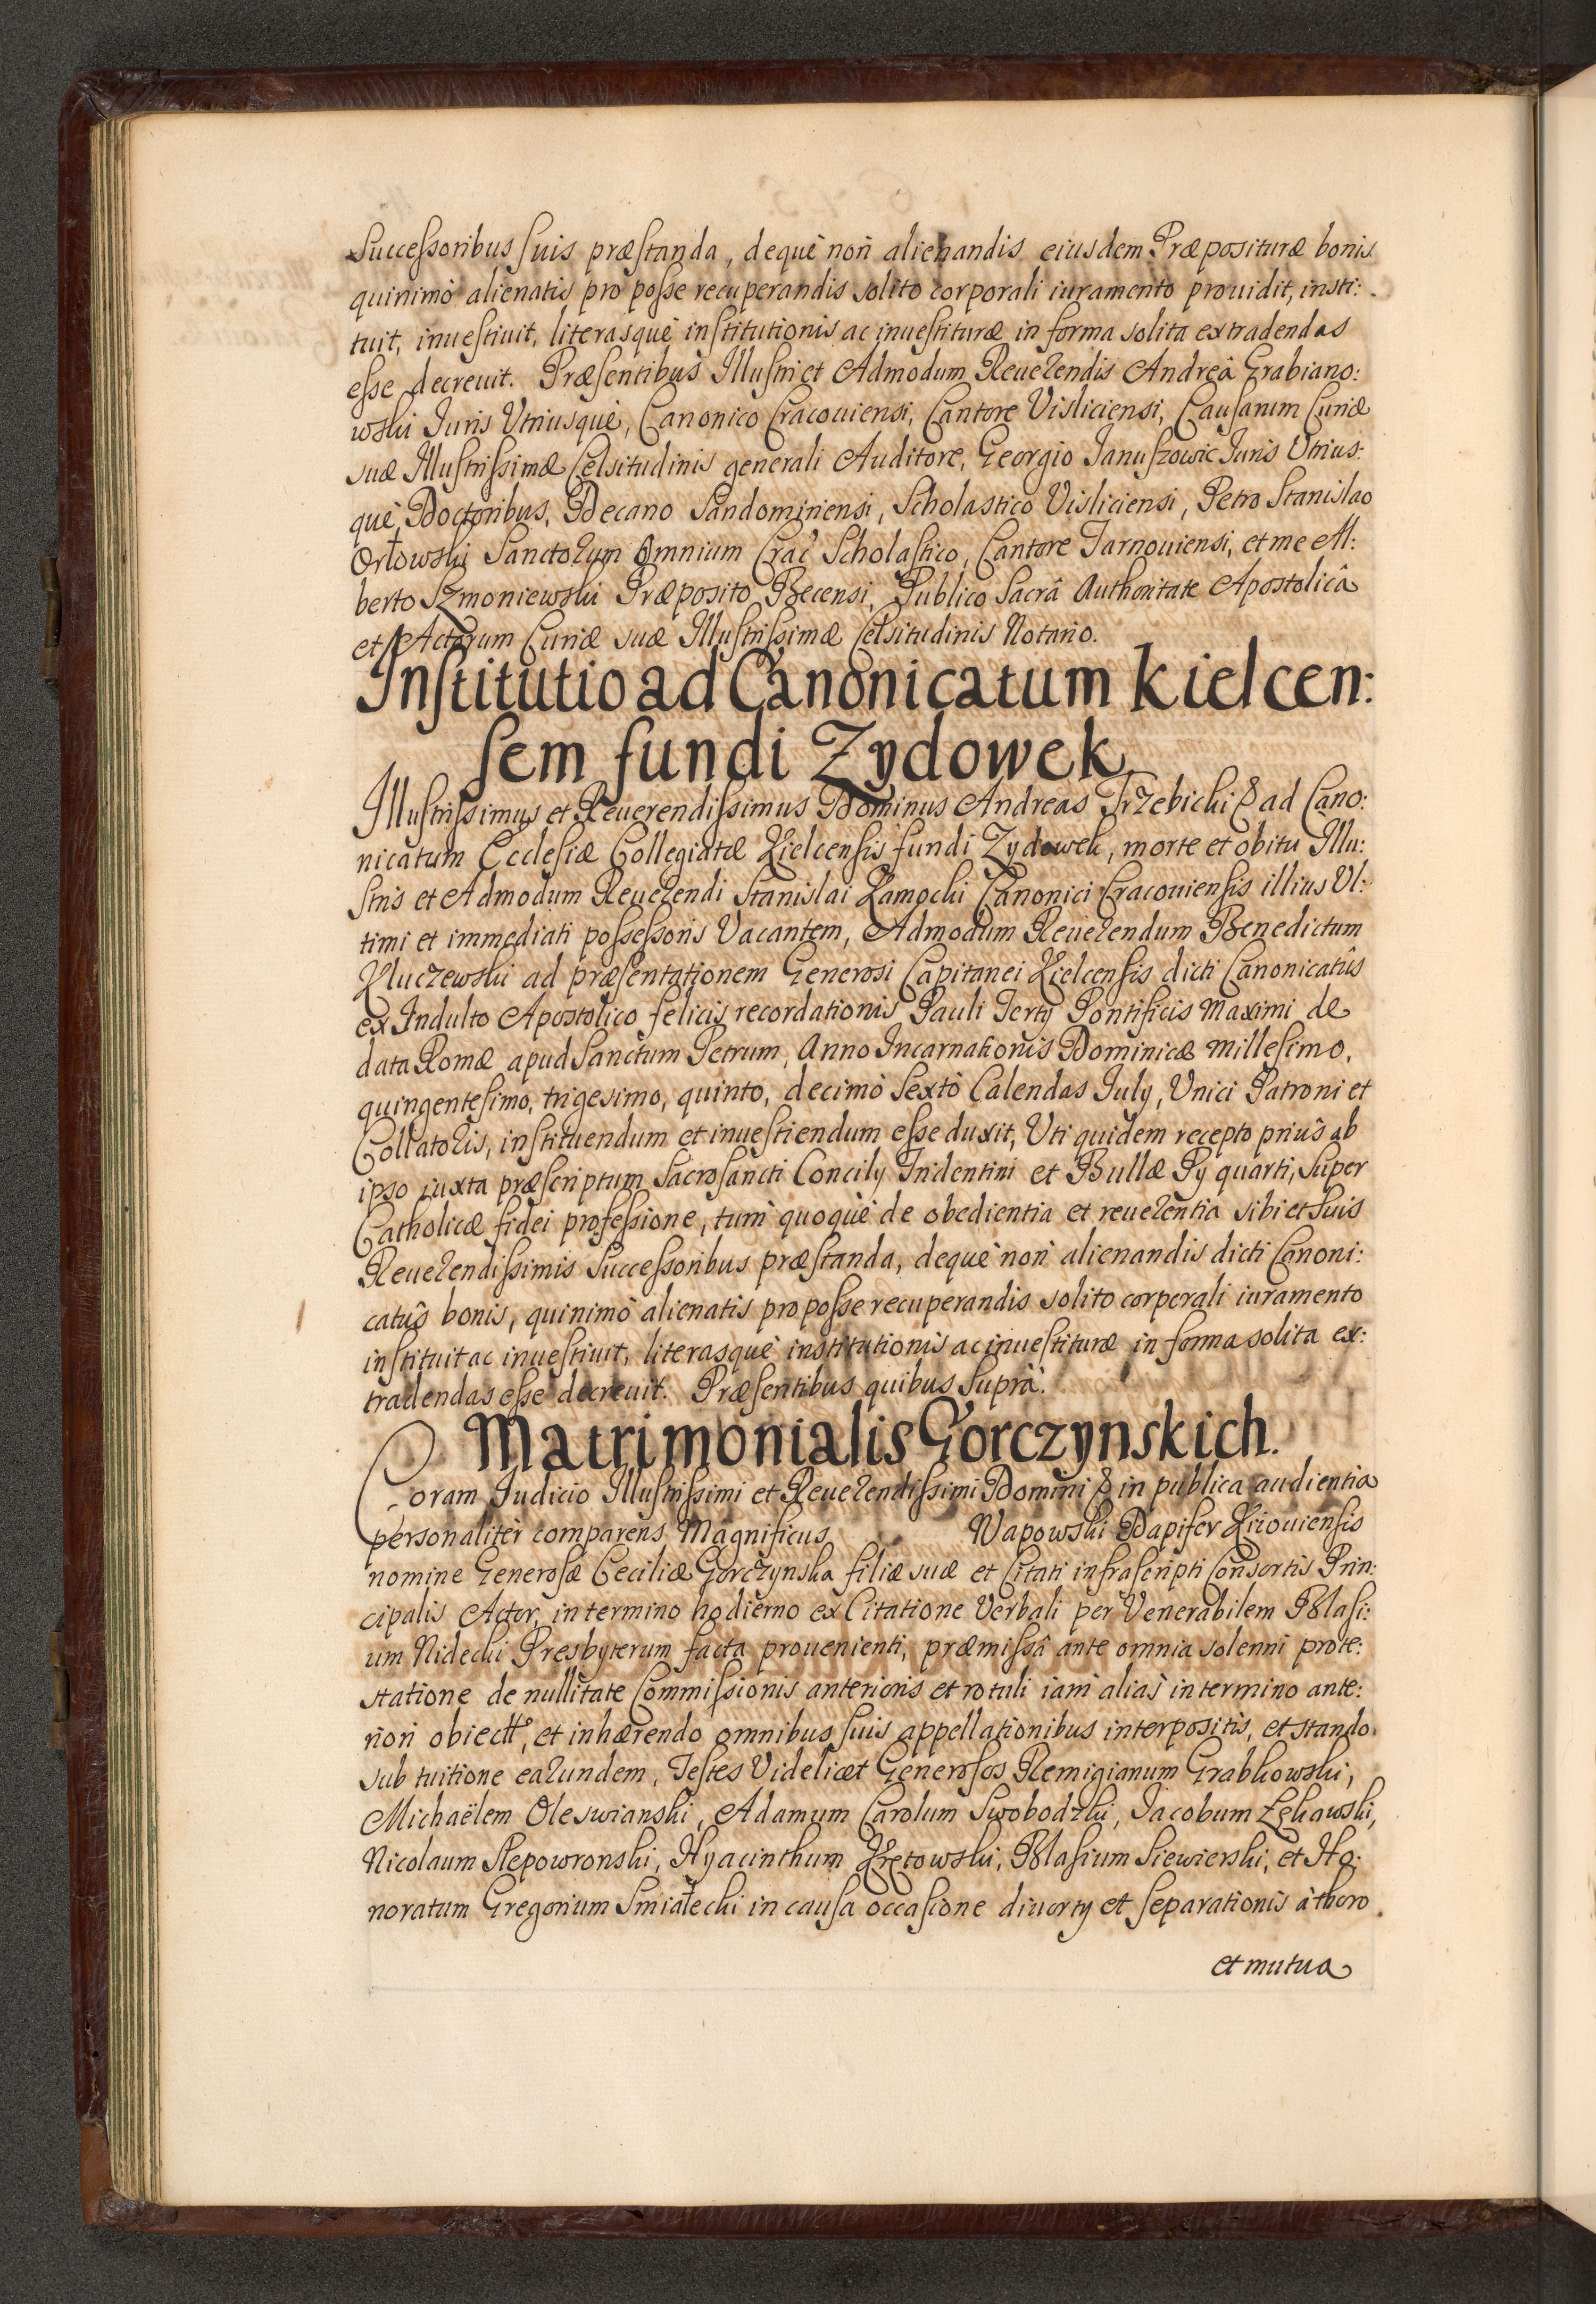 Successoribus suis præstanda, dequè non alienandis eiusdem Præpositurae bonis
quinimò alienatis pro posse recuperandis solito corporali iuramento prouidit, insti:
tuit, inuestiuit, literasquè institutionis ac inuestituræ in forma solita extradendas
esse decreuit. Præsentibus Illustri et Admodum Reuerendis Andreâ Grabiano:
wski Iuris Vtriusquè, Canonico Cracouiensi, Cantore Visliciensi, Causarum Curiæ
suæ Illustrissimæ Celsitudinis generali Auditore, Georgio Januszowic Iuris Vtrius:
què Doctoribus, Decano Sandomiriensi, Scholastico Visliciensi, Petro Stanislao
Orłowski Sanctorum Omnium Crac̄ Scholastico, Cantore Tarnouiensi, et me Al:
berto Szmoniewski Præposito Becensi, Publico Sacrâ Authoritate Apostolicâ
et Actorum Curiæ suæ Illustrissimæ Celsitudinis Notario.
Institutio ad Canonicatum Kielcen:
sem fundi Zydowek
Illustrissimus et Reuerendissimus Dominus Andreas Trzebicki & ad Cano:
nicatum Ecclesiæ Collegiatæ Kielcensis fundi Zydowek, morte et obitu Illu:
stris et Admodum Reuerendi Stanislai Zamocki Canonici Cracouiensis illius Vl:
timi et immediati possessoris Vacantem, Admodum Reuerendum Benedictum
Kluczewski ad præsentationem Generosi Capitanei Kielcensis dicti Canonicatûs
ex Indulto Apostolico felicis recordationis Pauli Tertij Pontificis Maximi de
data Romæ apud Sanctum Petrum, Anno Incarnationis Dominicæ Millesimo,
quingentesimo, trigesimo, quinto, decimò Sextò Calendas July, Vnici Patroni et
Collatoris, instituendum et inuestiendum esse duxit, Vti quidem recepto priùs ab
ipso iuxta præscriptum Sacrosancti Concily Tridentini et Bullæ Py quarti, Super
Catholicæ fidei professione, tum quoquè de obedientia et reuerentia sibi et suis
Reuerendissimis Successoribus præstanda, dequè non alienandis dicti Canoni:
catûs bonis, quinimò alienatis pro posse recuperandis solito corporali iuramento
instituit ac inuestiuit, literasquè institutionis ac inuestituræ in forma solita ex:
tradendas esse decreuit. Præsentibus quibus Suprà.
Matrimonialis Gorczynskich.
Coram Iudicio Illustrissimi et Reuerendissimi Domini & in publica audientia
personalitèr comparens Magnificus Wapowski Dapifer Kiiouiensis
nomine Generosæ Ceciliæ Gorczynska filiæ suæ et Citati infrascripti Consortis Prin:
cipalis Actor, in termino hodierno ex Citatione Verbali per Venerabilem Blasi:
um Nidecki Presbyterum facta prouenienti, præmissâ ante omnia solenni prote:
statione de nullitate Commissionis anterioris et rotuli iam aliàs in termino ante:
riori obiect, et inhærendo omnibus suis appellationibus interpositis, et stando
sub tuitione earundem, Testes Videlicet Generosos Remigianum Grabkowski,
Michaëlem Oleswianski, Adamum Carolum Swobodzki, Jacobum Łękawski,
Nicolaum Slepowronski, Hyacinthum Krętowski, Blasium Siewierski, et Ho:
noratum Gregorium Smiałecki in causa occasione diuortij et separationis à thoro
et mutua